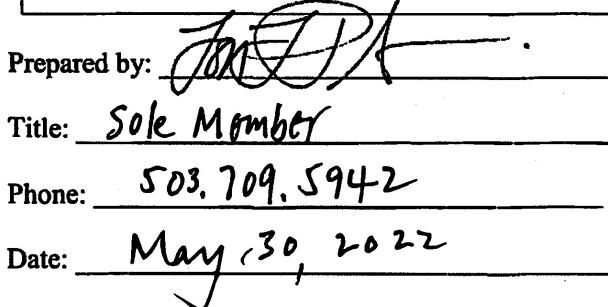 Prepared by:
Title: Sole Member
Phone: 503.709.5942
Date: May, 30, 2022